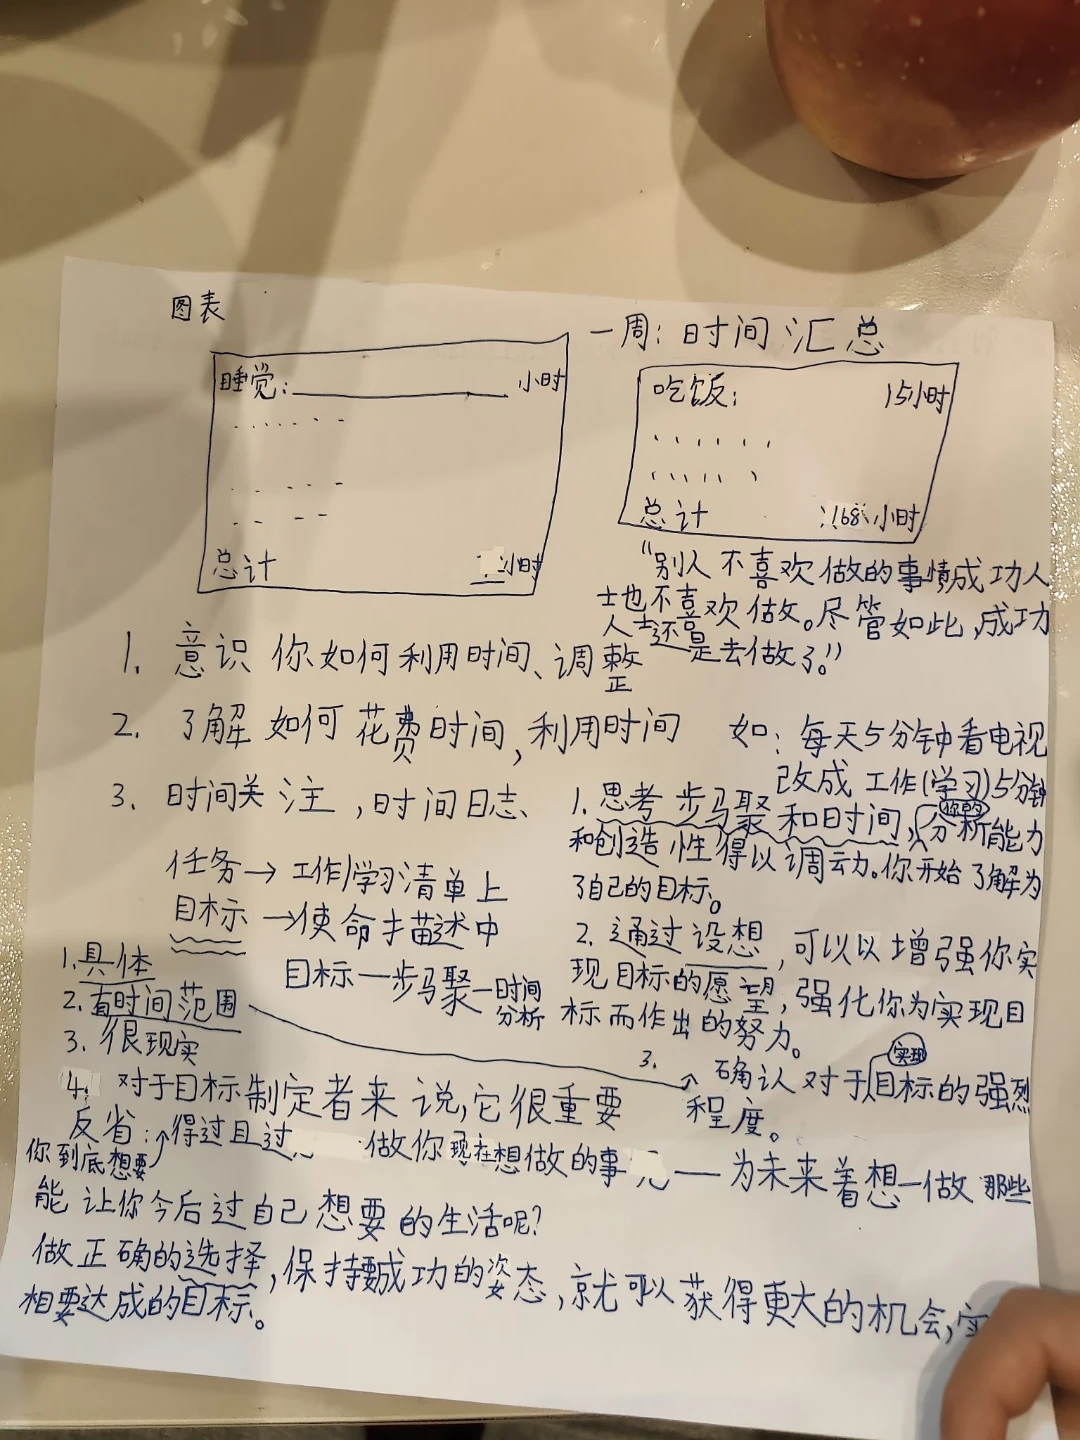 图表
睡觉: 小时
总计 小时
一周: 时间汇总
吃饭: 15小时
总计 168小时
“别人不喜欢做的事情成功人
士也不喜欢做。尽管如此,成功
人士还是去做了。”
1. 意识你如何利用时间、调整
2. 了解如何花费时间,利用时间
3. 时间关注,时间日志、
如: 每天5分钟看电视
改成工作(学习)5分钟
任务→工作/学习清单上
目标→使命描述中
目标一步骤一时间
分析
1. 思考步骤和时间,你的分析能力
和创造性得以调动。你开始了解为
了自己的目标。
2. 通过设想,可以以增强你实
现目标的愿望,强化你为实现目
标而作出的努力。
3. 确认对于实现目标的强烈
程度。
1. 具体
2. 有时间范围
3. 很现实
4. 对于目标制定者来说,它很重要
反省: 得过且过 做你现在想做的事 — 为未来着想一做那些
你到底想要
能让你今后过自己想要的生活呢?
做正确的选择,保持成功的姿态,就可以获得更大的机会,
相要达成的目标。